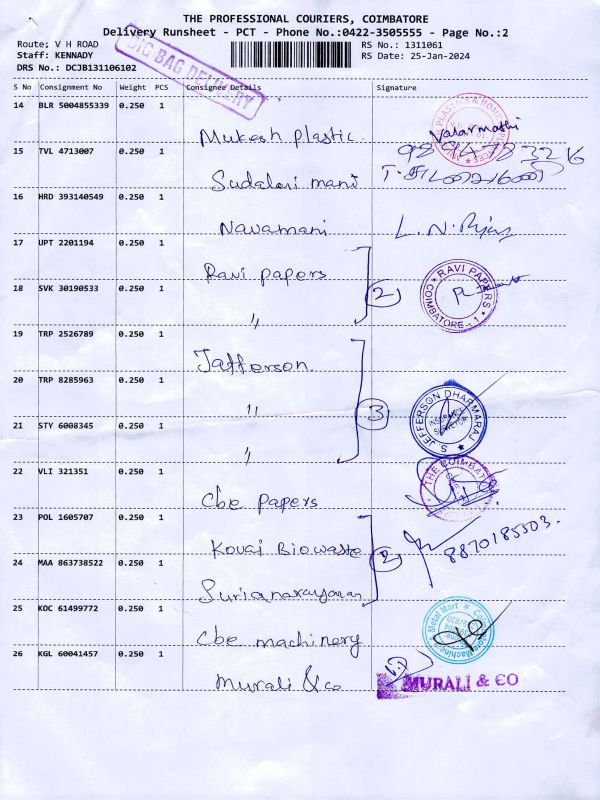 THE PROFESSIONAL COURIERS, COIMBATORE
Delivery Runsheet - PCT - Phone No.:0422-3505555 - Page No.:2
Route: V H ROAD
Staff: KENNADY
DRS No.: DCJB131106102
RS No.: 1311061
RS Date: 25-Jan-2024
BIG BAG DELIVERY
S No Consignment No Weight PCS Consignee Details Signature
14 BLR 5004855339 0.250 1
Mukesh plastic. Valarmathi
15 TVL 4713007 0.250 1
Sudalai mani
16 HRD 393140549 0.250 1
Navamani L. N.
17 UPT 2201194 0.250 1
Ravi papers
2
RAVI PAPERS
COIMBATORE - 1
18 SVK 30190533 0.250 1
"
19 TRP 2526789 0.250 1
Jafferson.
20 TRP 8285963 0.250 1
"
3
S. JEFFERSON DHARMARAJ
INSURANCE
SURVEYOR
21 STY 6008345 0.250 1
"
22 VLI 321351 0.250 1
Cbe papers
THE COIMBATO
23 POL 1605707 0.250 1
Kovai Biowaste
2
8870185503.
24 MAA 863738522 0.250 1
Surianarayanan
25 KOC 61499772 0.250 1
Cbe machinery
Metal Mart
26 KGL 60041457 0.250 1
Murali & co
MURALI & CO